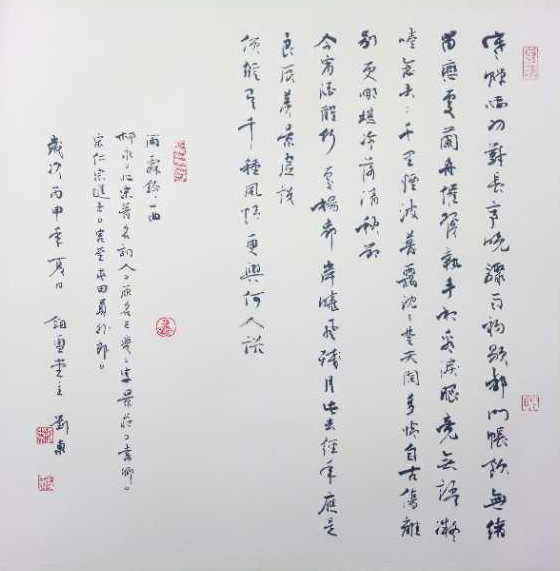 寒蟬凄切對長亭晚驟雨初歇都門帳飲無緒
留戀處蘭舟催發執手相看淚眼竟無語凝
噎念去々千里煙波暮靄沈々楚天闊多情自古傷離
別更哪堪冷落清秋節
今宵酒醒何處楊柳岸曉風殘月此去經年應是
良辰美景虛設
便縱有千種風情更與何人說
雨霖鈴一曲
柳永北宋著名詞人原名三變字景莊
宋仁宗進士官至屯田員外郎
歲次丙申年夏日 堂主 劉東